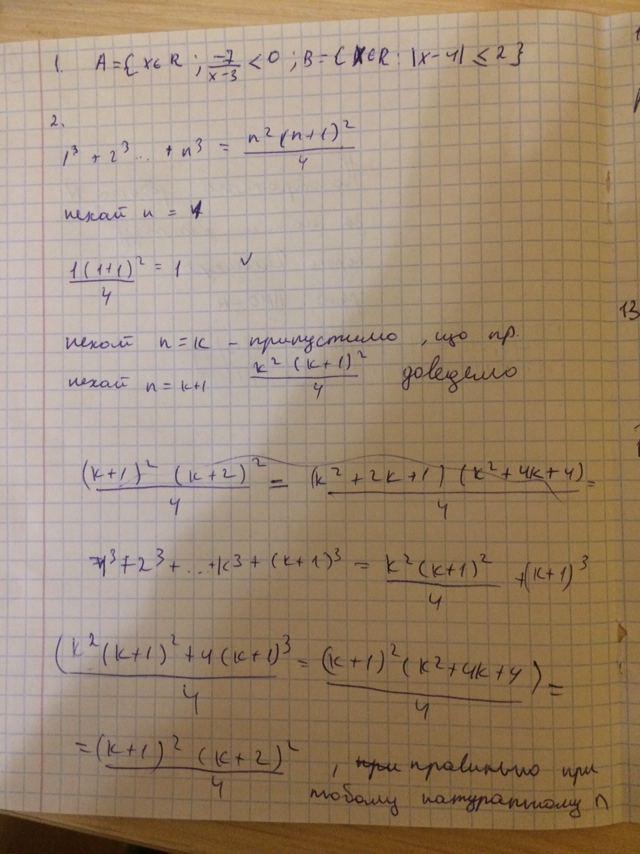 1. A={x∈R ; -7/(x-3) < 0 ; B={x∈R : |x-4| ≤ 2}
2.
1³ + 2³ ... + n³ = n²(n+1)²/4
нехай n = 1
1(1+1)²/4 = 1 ✓
нехай n = k – припустимо , що пр.
нехай n = k+1 k²(k+1)²/4 доведемо
(k+1)² (k+2)²/4 = (k²+2k+1) (k²+4k+4)/4 =
=1³+2³+...+k³+(k+1)³ = k²(k+1)²/4 +(k+1)³
(k²(k+1)²+4(k+1)³/4 = (k+1)²(k²+4k+4)/4 =
=(k+1)² (k+2)²/4 , при правильно при
любому натуральному n
13